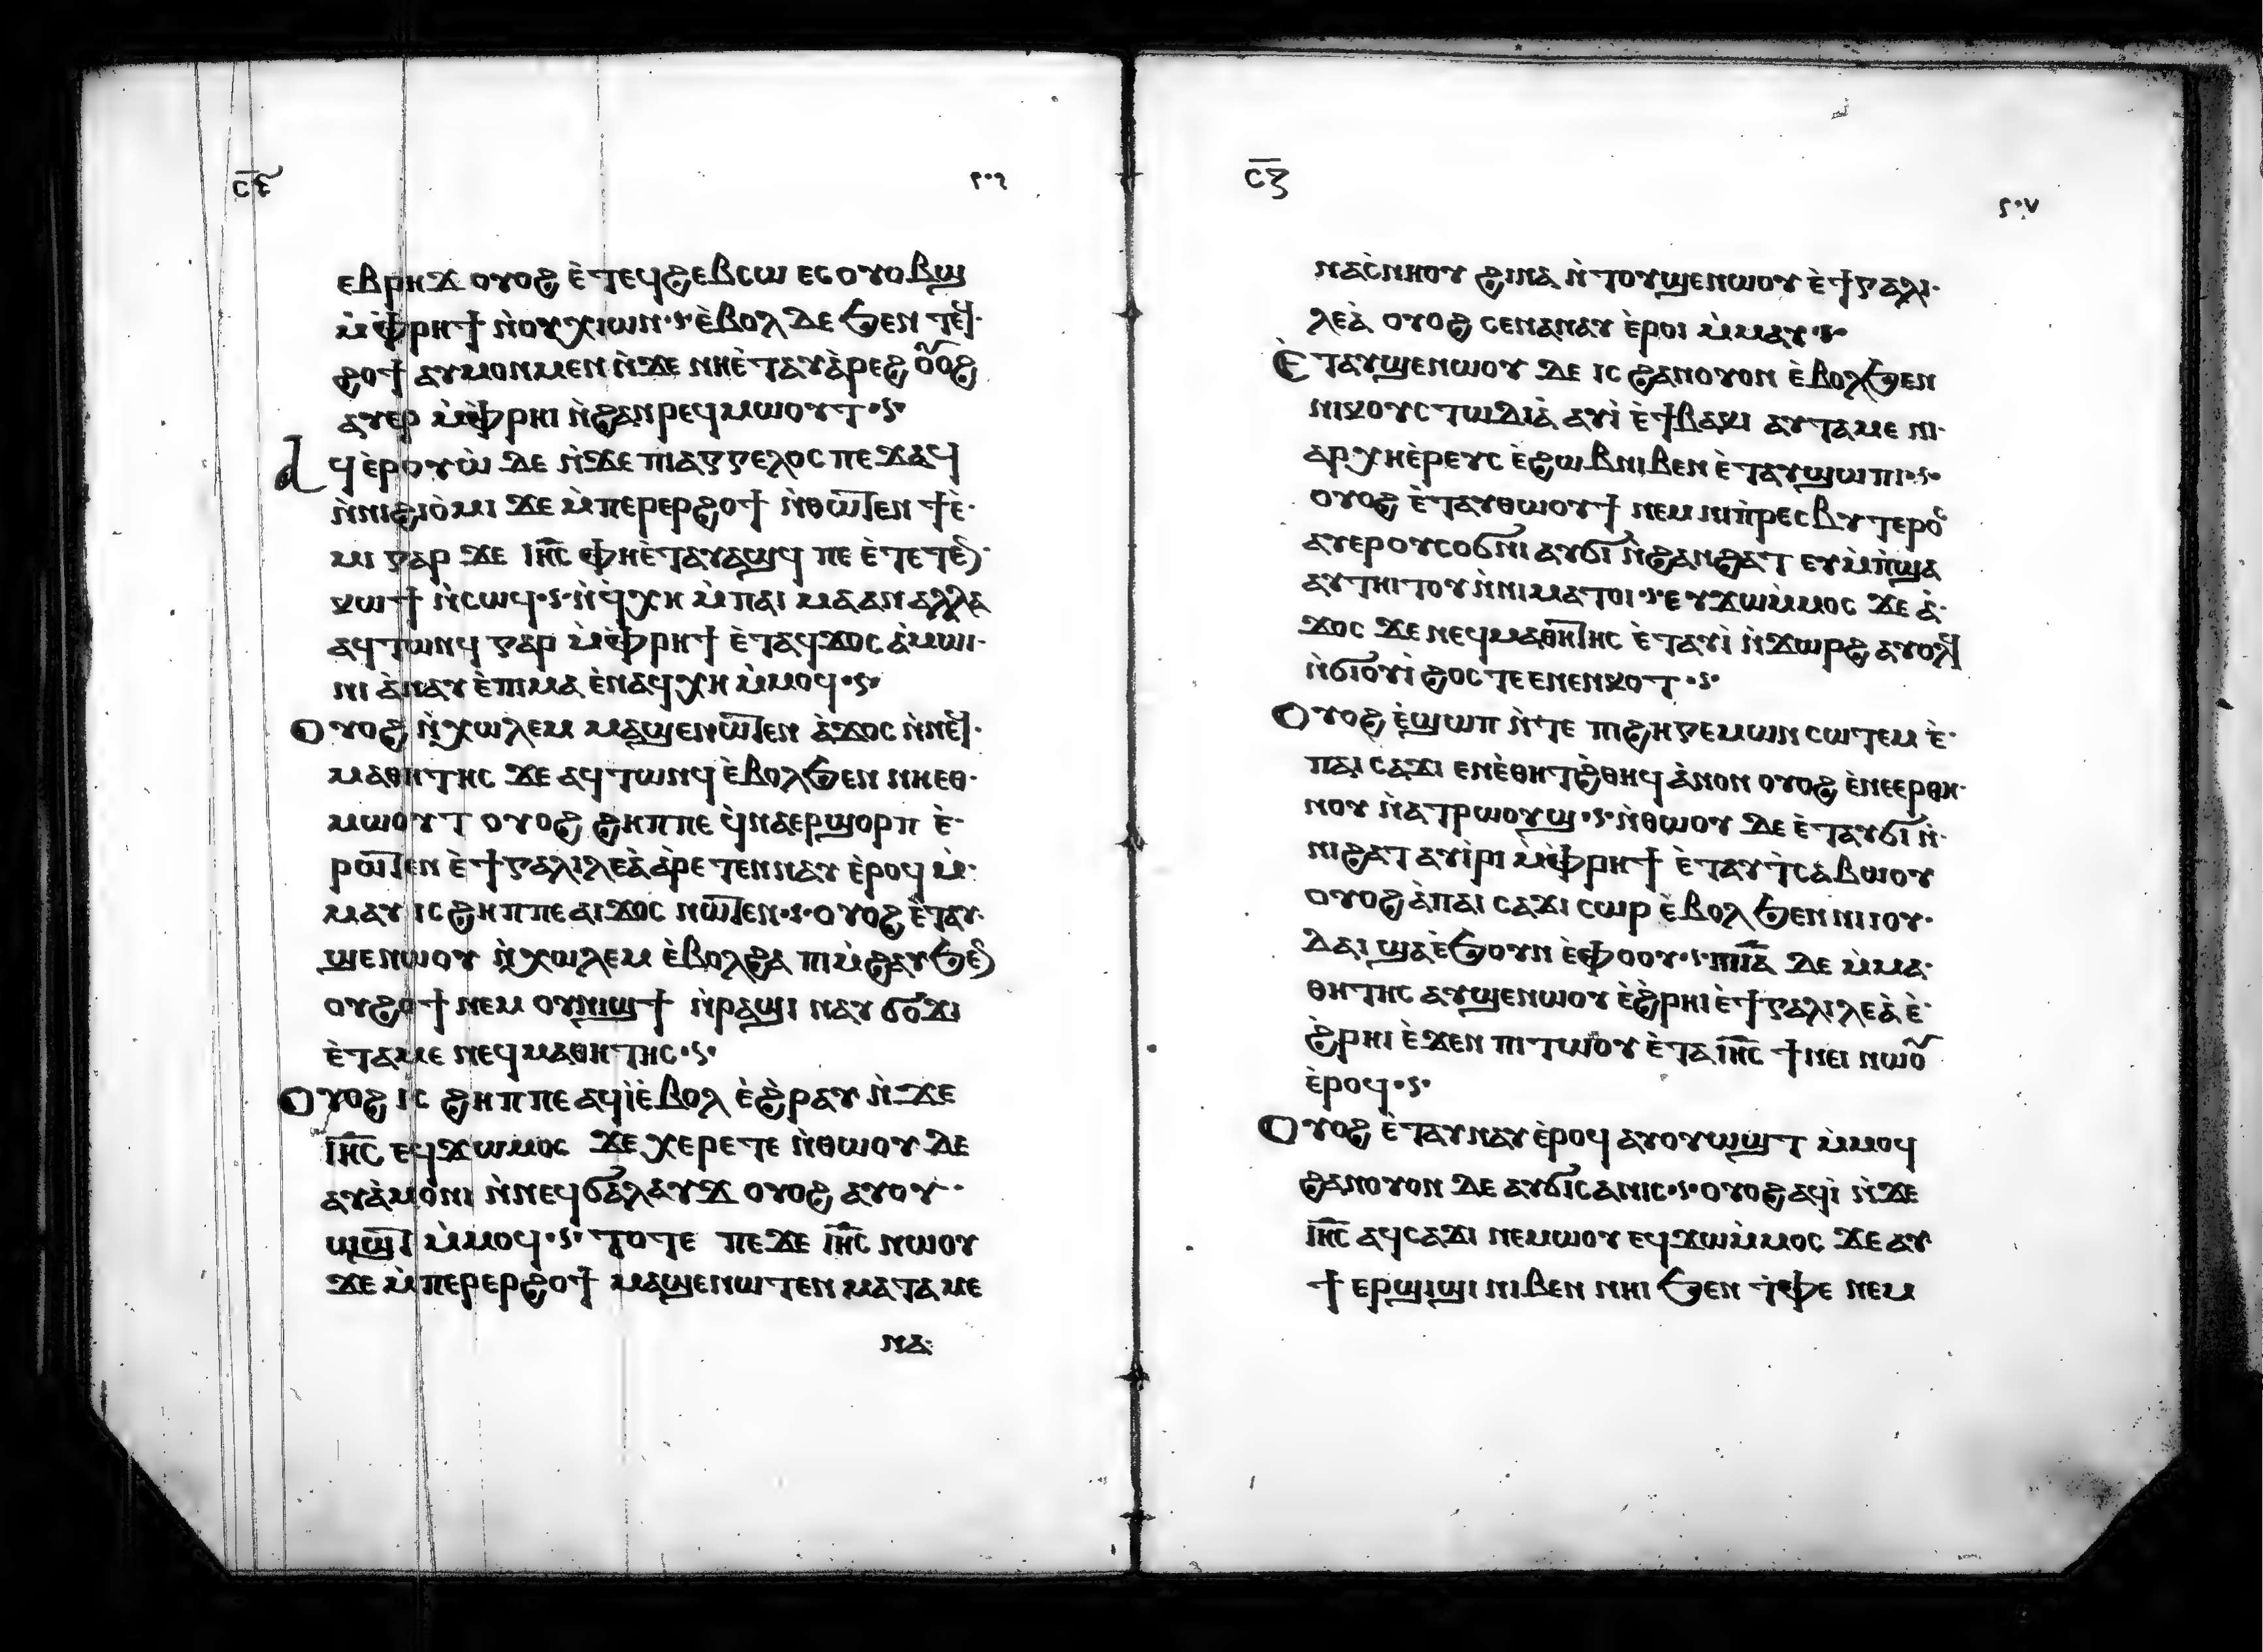 ⲥ̅ⲋ̅ ٢٠٦
ⲉⲃⲣⲏϫ ⲟⲩⲟϩ ⲉ̀ⲧⲉϥϩⲉⲃⲥⲱ ⲉⲥⲟⲩⲟⲃϣ
ⲙ̀ⲫⲣⲏϯ ⲛ̀ⲟⲩⲭⲓⲱⲛ·ⲋ· ⲉ̀ⲃⲟⲗ ⲇⲉ ϧⲉⲛ ⲧⲉϥ·
ϩⲟϯ ⲁⲩⲙⲟⲛⲙⲉⲛ ⲛ̀ϫⲉ ⲛⲏⲉ̀ⲧⲁⲩⲁ̀ⲣⲉϩ ⲟ̃ⲟϩ
ⲁⲩⲉⲣ ⲙ̀ⲫⲣⲏⲓ ⲛ̀ϩⲁⲛⲣⲉϥⲙⲱⲟⲩⲧ·ⲋ·
ⲁϥⲉ̀ⲣⲟⲩⲱ̀ ⲇⲉ ⲛ̀ϫⲉ ⲡⲓⲁⲅⲅⲉⲗⲟⲥ ⲡⲉϫⲁϥ
ⲛ̀ⲛⲓϩⲓⲟ̀ⲙⲓ ϫⲉ ⲙ̀ⲡⲉⲣⲉⲣϩⲟϯ ⲛ̀ⲑⲱⲧⲉⲛ ϯⲉ̀·
ⲙⲓ ⲅⲁⲣ ϫⲉ ⲓ̅ⲏ̅ⲥ̅ ⲫⲏⲉ̀ⲧⲁⲩⲁϣϥ ⲡⲉ ⲉ̀ⲧⲉⲧⲉ̀·
ⲕⲱϯ ⲛ̀ⲥⲱϥ·ⲋ· ⲛ̀ϥⲭⲏ ⲙ̀ⲡⲁⲓ ⲙⲁ ⲁⲛ ⲁⲗⲗⲁ
ⲁϥⲧⲱⲛϥ ⲅⲁⲣ ⲙ̀ⲫⲣⲏϯ ⲉ̀ⲧⲁϥϫⲟⲥ ⲁ̀ⲙⲱⲓ·
ⲛⲓ ⲁ̀ⲛⲁⲩ ⲉ̀ⲡⲓⲙⲁ ⲉ̀ⲛⲁϥⲭⲏ ⲙ̀ⲙⲟϥ·ⲋ·
ⲟⲩⲟϩ ⲛ̀ⲭⲱⲗⲉⲙ ⲙⲁϣⲉⲛⲱⲧⲉⲛ ⲁ̀ϫⲟⲥ ⲛ̀ⲛⲉϥ·
ⲙⲁⲑⲏⲧⲏⲥ ϫⲉ ⲁϥⲧⲱⲛϥ ⲉ̀ⲃⲟⲗϧⲉⲛ ⲛⲏⲉⲑ·
ⲙⲱⲟⲩⲧ ⲟⲩⲟϩ ϩⲏⲡⲡⲉ ϥ̀ⲛⲁⲉⲣϣⲟⲣⲡ ⲉ̀·
ⲣⲱⲧⲉⲛ ⲉ̀ϯⲅⲁⲗⲓⲗⲉⲁ̀ ⲁ̀ⲣⲉⲧⲉⲛⲛⲁⲩ ⲉ̀ⲣⲟϥ ⲙ̀·
ⲙⲁⲩ ⲓⲥ ϩⲏⲡⲡⲉ ⲁⲓϫⲟⲥ ⲛⲱⲧⲉⲛ·ⲋ· ⲟⲩⲟϩ ⲉ̀ⲧⲁⲩ·
ϣⲉⲛⲱⲟⲩ ⲛ̀ⲭⲱⲗⲉⲙ ⲉ̀ⲃⲟⲗϩⲁ ⲡⲓⲙ̀ϩⲁⲩ ϧⲉ̀
ⲟⲩϩⲟϯ ⲛⲉⲙ ⲟⲩⲛⲓϣϯ ⲛ̀ⲣⲁϣⲓ ⲛⲁⲩϭⲟϫⲓ
ⲉ̀ⲧⲁⲙⲉ ⲛⲉϥⲙⲁⲑⲏⲧⲏⲥ·ⲋ·
ⲟⲩⲟϩ ⲓⲥ ϩⲏⲡⲡⲉ ⲁϥⲓ̀ⲉ̀ⲃⲟⲗ ⲉ̀ϩ̀ⲣⲁⲩ ⲛ̀ϫⲉ
ⲓ̅ⲏ̅ⲥ̅ ⲉϥϫⲱⲙⲟⲥ ϫⲉ ⲭⲉⲣⲉⲧⲉ ⲛ̀ⲑⲱⲟⲩ ⲇⲉ
ⲁⲩⲁ̀ⲙⲟⲛⲓ ⲛ̀ⲛⲉϥϭⲁⲗⲁⲩϫ ⲟⲩⲟϩ ⲁⲩⲟⲩ··
ϣϣⲧ ⲙ̀ⲙⲟϥ·ⲋ· ⲧⲟⲧⲉ ⲡⲉϫⲉ ⲓ̅ⲏ̅ⲥ̅ ⲛⲱⲟⲩ
ϫⲉ ⲙ̀ⲡⲉⲣⲉⲣϩⲟϯ ⲙⲁϣⲉⲛⲱⲧⲉⲛ ⲙⲁⲧⲁⲙⲉ
ⲛⲁ·
ⲥ̅ⲍ̅ ٢٠٧
ⲛⲁⲥ̀ⲛⲏⲟⲩ ϩⲓⲛⲁ ⲛ̀ⲧⲟⲩϣⲉⲛⲱⲟⲩ ⲉ̀ϯⲅⲁⲗⲓ·
ⲗⲉⲁ̀ ⲟⲩⲟϩ ⲥⲉⲛⲁⲛⲁⲩ ⲉ̀ⲣⲟⲓ ⲙ̀ⲙⲁⲩ·ⲋ·
ⲉ̀ⲧⲁⲩϣⲉⲛⲱⲟⲩ ⲇⲉ ⲓⲥ ϩⲁⲛⲟⲩⲟⲛ ⲉ̀ⲃⲟⲗϧⲉⲛ
ⲛⲓⲕⲟⲩⲥⲧⲱⲇⲓⲁ̀ ⲁⲩⲓ̀ ⲉ̀ϯⲃⲁⲕⲓ ⲁⲩⲧⲁⲙⲉ ⲛⲓ·
ⲁⲣⲭⲏⲉ̀ⲣⲉⲩⲥ ⲉ̀ϩⲱⲃ ⲛⲓⲃⲉⲛ ⲉ̀ⲧⲁⲩϣⲱⲡⲓ·ⲋ·
ⲟⲩⲟϩ ⲉ̀ⲧⲁⲩⲑⲱⲟⲩϯ ⲛⲉⲙ ⲛⲓⲡ̀ⲣⲉⲥⲃⲩⲧⲉⲣⲟⲥ
ⲁⲩⲉⲣⲟⲩⲥⲟϭⲛⲓ ⲁⲩϭⲓ ⲛ̀ϩⲁⲛϩⲁⲧ ⲉⲩⲙ̀ⲡ̀ϣⲁ
ⲁⲩⲧⲏⲓⲧⲟⲩ ⲛ̀ⲛⲓⲙⲁⲧⲟⲓ·ⲋ· ⲉⲩϫⲱⲙ̀ⲙⲟⲥ ϫⲉ ⲁ̀·
ϫⲟⲥ ϫⲉ ⲛⲉϥⲙⲁⲑⲏⲧⲏⲥ ⲉ̀ⲧⲁⲩⲓ̀ ⲛ̀ϫⲱⲣϩ ⲁⲩⲟⲗϥ
ⲛ̀ϭⲓⲟⲩⲓ̀ ϩⲟⲥ ⲧⲉ ⲉⲛⲉⲛⲕⲟⲧ·ⲋ·
ⲟⲩⲟϩ ⲉ̀ϣⲱⲡ ⲛ̀ⲧⲉ ⲡⲓϩⲏⲅⲉⲙⲱⲛ ⲥⲱⲧⲉⲙ ⲉ̀·
ⲡⲁⲓ ⲥⲁϫⲓ ⲉⲛⲉ̀ⲑⲏⲧϩ̀ⲑⲏϥ ⲁ̀ⲛⲟⲛ ⲟⲩⲟϩ ⲉ̀ⲛⲉⲉⲣⲑⲏ·
ⲛⲟⲩ ⲛ̀ⲁⲧⲣⲱⲟⲩϣ·ⲋ· ⲛ̀ⲑⲱⲟⲩ ⲇⲉ ⲉ̀ⲧⲁⲩϭⲓ ⲛ̀·
ⲛⲓϩⲁⲧ ⲁⲩⲓ̀ⲣⲓ ⲙ̀ⲫⲣⲏϯ ⲉ̀ⲧⲁⲩⲧ̀ⲥⲁⲃⲱⲟⲩ
ⲟⲩⲟϩ ⲁ̀ⲡⲁⲓ ⲥⲁϫⲓ ⲥⲱⲣ ⲉ̀ⲃⲟⲗ ϧⲉⲛ ⲛⲓⲓⲟⲩ·
ⲇⲁⲓ ϣⲁⲉ̀ϧⲟⲩⲛ ⲉ̀ⲫⲟⲟⲩ·ⲋ· ⲡⲓⲓ̅ⲁ̅ ⲇⲉ ⲙ̀ⲙⲁ·
ⲑⲏⲧⲏⲥ ⲁⲩϣⲉⲛⲱⲟⲩ ⲉ̀ϩ̀ⲣⲏⲓ ⲉ̀ϯⲅⲁⲗⲓⲗⲉⲁ̀ ⲉ̀·
ϩ̀ⲣⲏⲓ ⲉ̀ϫⲉⲛ ⲡⲓⲧⲱⲟⲩ ⲉ̀ⲧⲁ ⲓ̅ⲏ̅ⲥ̅ ϯⲛⲉⲓ ⲛⲱⲟ̃
ⲉ̀ⲣⲟϥ·ⲋ·
ⲟⲩⲟϩ ⲉ̀ⲧⲁⲩⲛⲁⲩ ⲉ̀ⲣⲟϥ ⲁⲩⲟⲩⲱϣⲧ ⲙ̀ⲙⲟϥ
ϩⲁⲛⲟⲩⲟⲛ ⲇⲉ ⲁⲩϭⲓⲥⲁⲛⲓⲥ·ⲋ· ⲟⲩⲟϩ ⲁϥⲓ̀ ⲛ̀ϫⲉ
ⲓ̅ⲏ̅ⲥ̅ ⲁϥⲥⲁϫⲓ ⲛⲉⲙⲱⲟⲩ ⲉϥϫⲱⲙ̀ⲙⲟⲥ ϫⲉ ⲁⲩ
ϯ ⲉⲣϣⲓϣⲓ ⲛⲓⲃⲉⲛ ⲛⲏⲓ ϧⲉⲛ ⲧ̀ⲫⲉ ⲛⲉⲙ